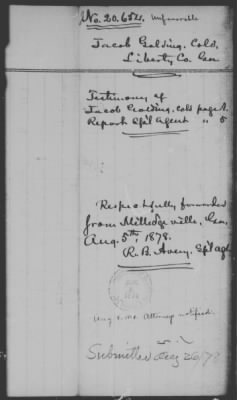 No. 20.654. Unfavorable
Jacob Golding. Cold.
Liberty Co. Geo.
Testimony of
Jacob Golding. cold page 1.
Report Spl Agent " 5
Respectfully forwarded
from Milledgeville, Geo.
Aug. 5th, 1878.
R. B. Avery. Spl Agt
Attorney notified.
Submitted Aug 26/78